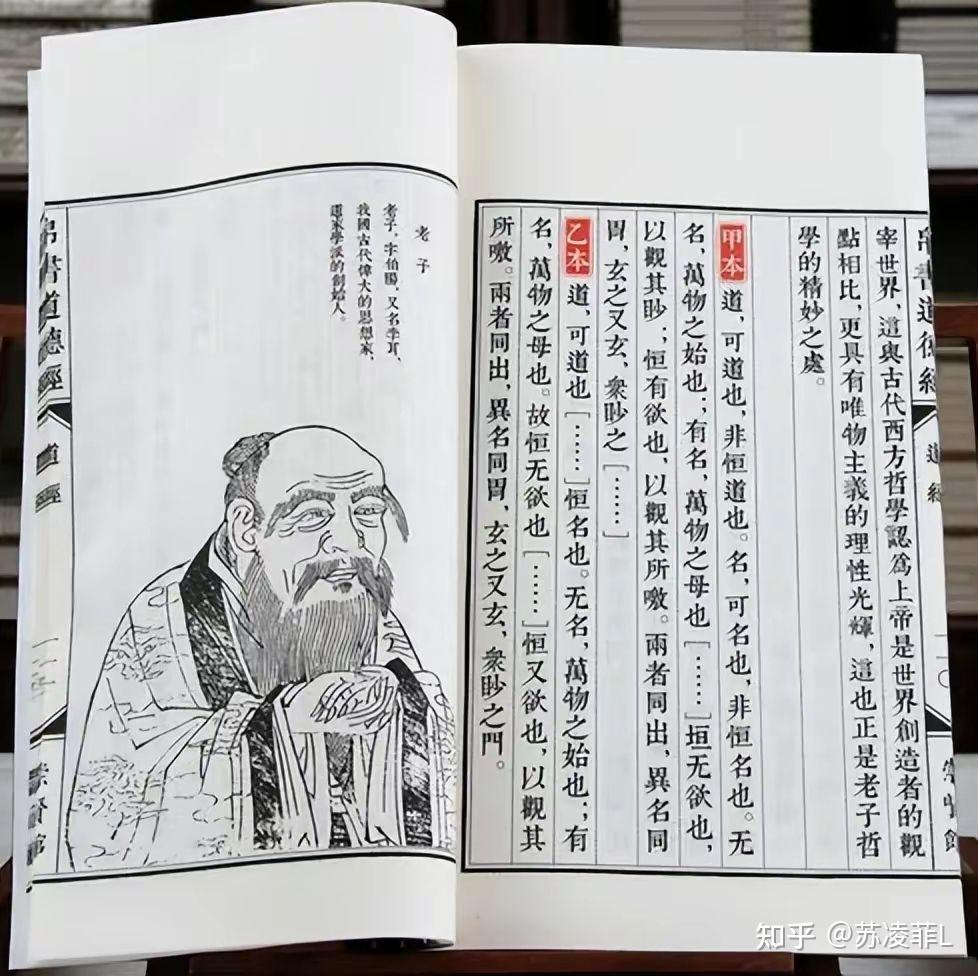 帛書道德經
道經
一〇
宰世界，這與古代西方哲學認爲上帝是世界創造者的觀
點相比，更具有唯物主義的理性光輝，這也正是老子哲
學的精妙之處。
甲本 道，可道也，非恒道也。名，可名也，非恒名也。无
名，萬物之始也；有名，萬物之母也［……］垣无欲也，
以觀其眇；恒有欲也，以觀其所噭。兩者同出，異名同
胃，玄之又玄，衆眇之［……］
乙本 道，可道也［……］恒名也。无名，萬物之始也；有
名，萬物之母也。故恒无欲也［……］恒又欲也，以觀其
所噭。兩者同出，異名同胃，玄之又玄，衆眇之門。
老子
老子，字伯陽，又名李耳，
我國古代偉大的思想家，
道家學派的創始人。
帛書道德經
道經
崇賢館
知乎 @苏凌菲L